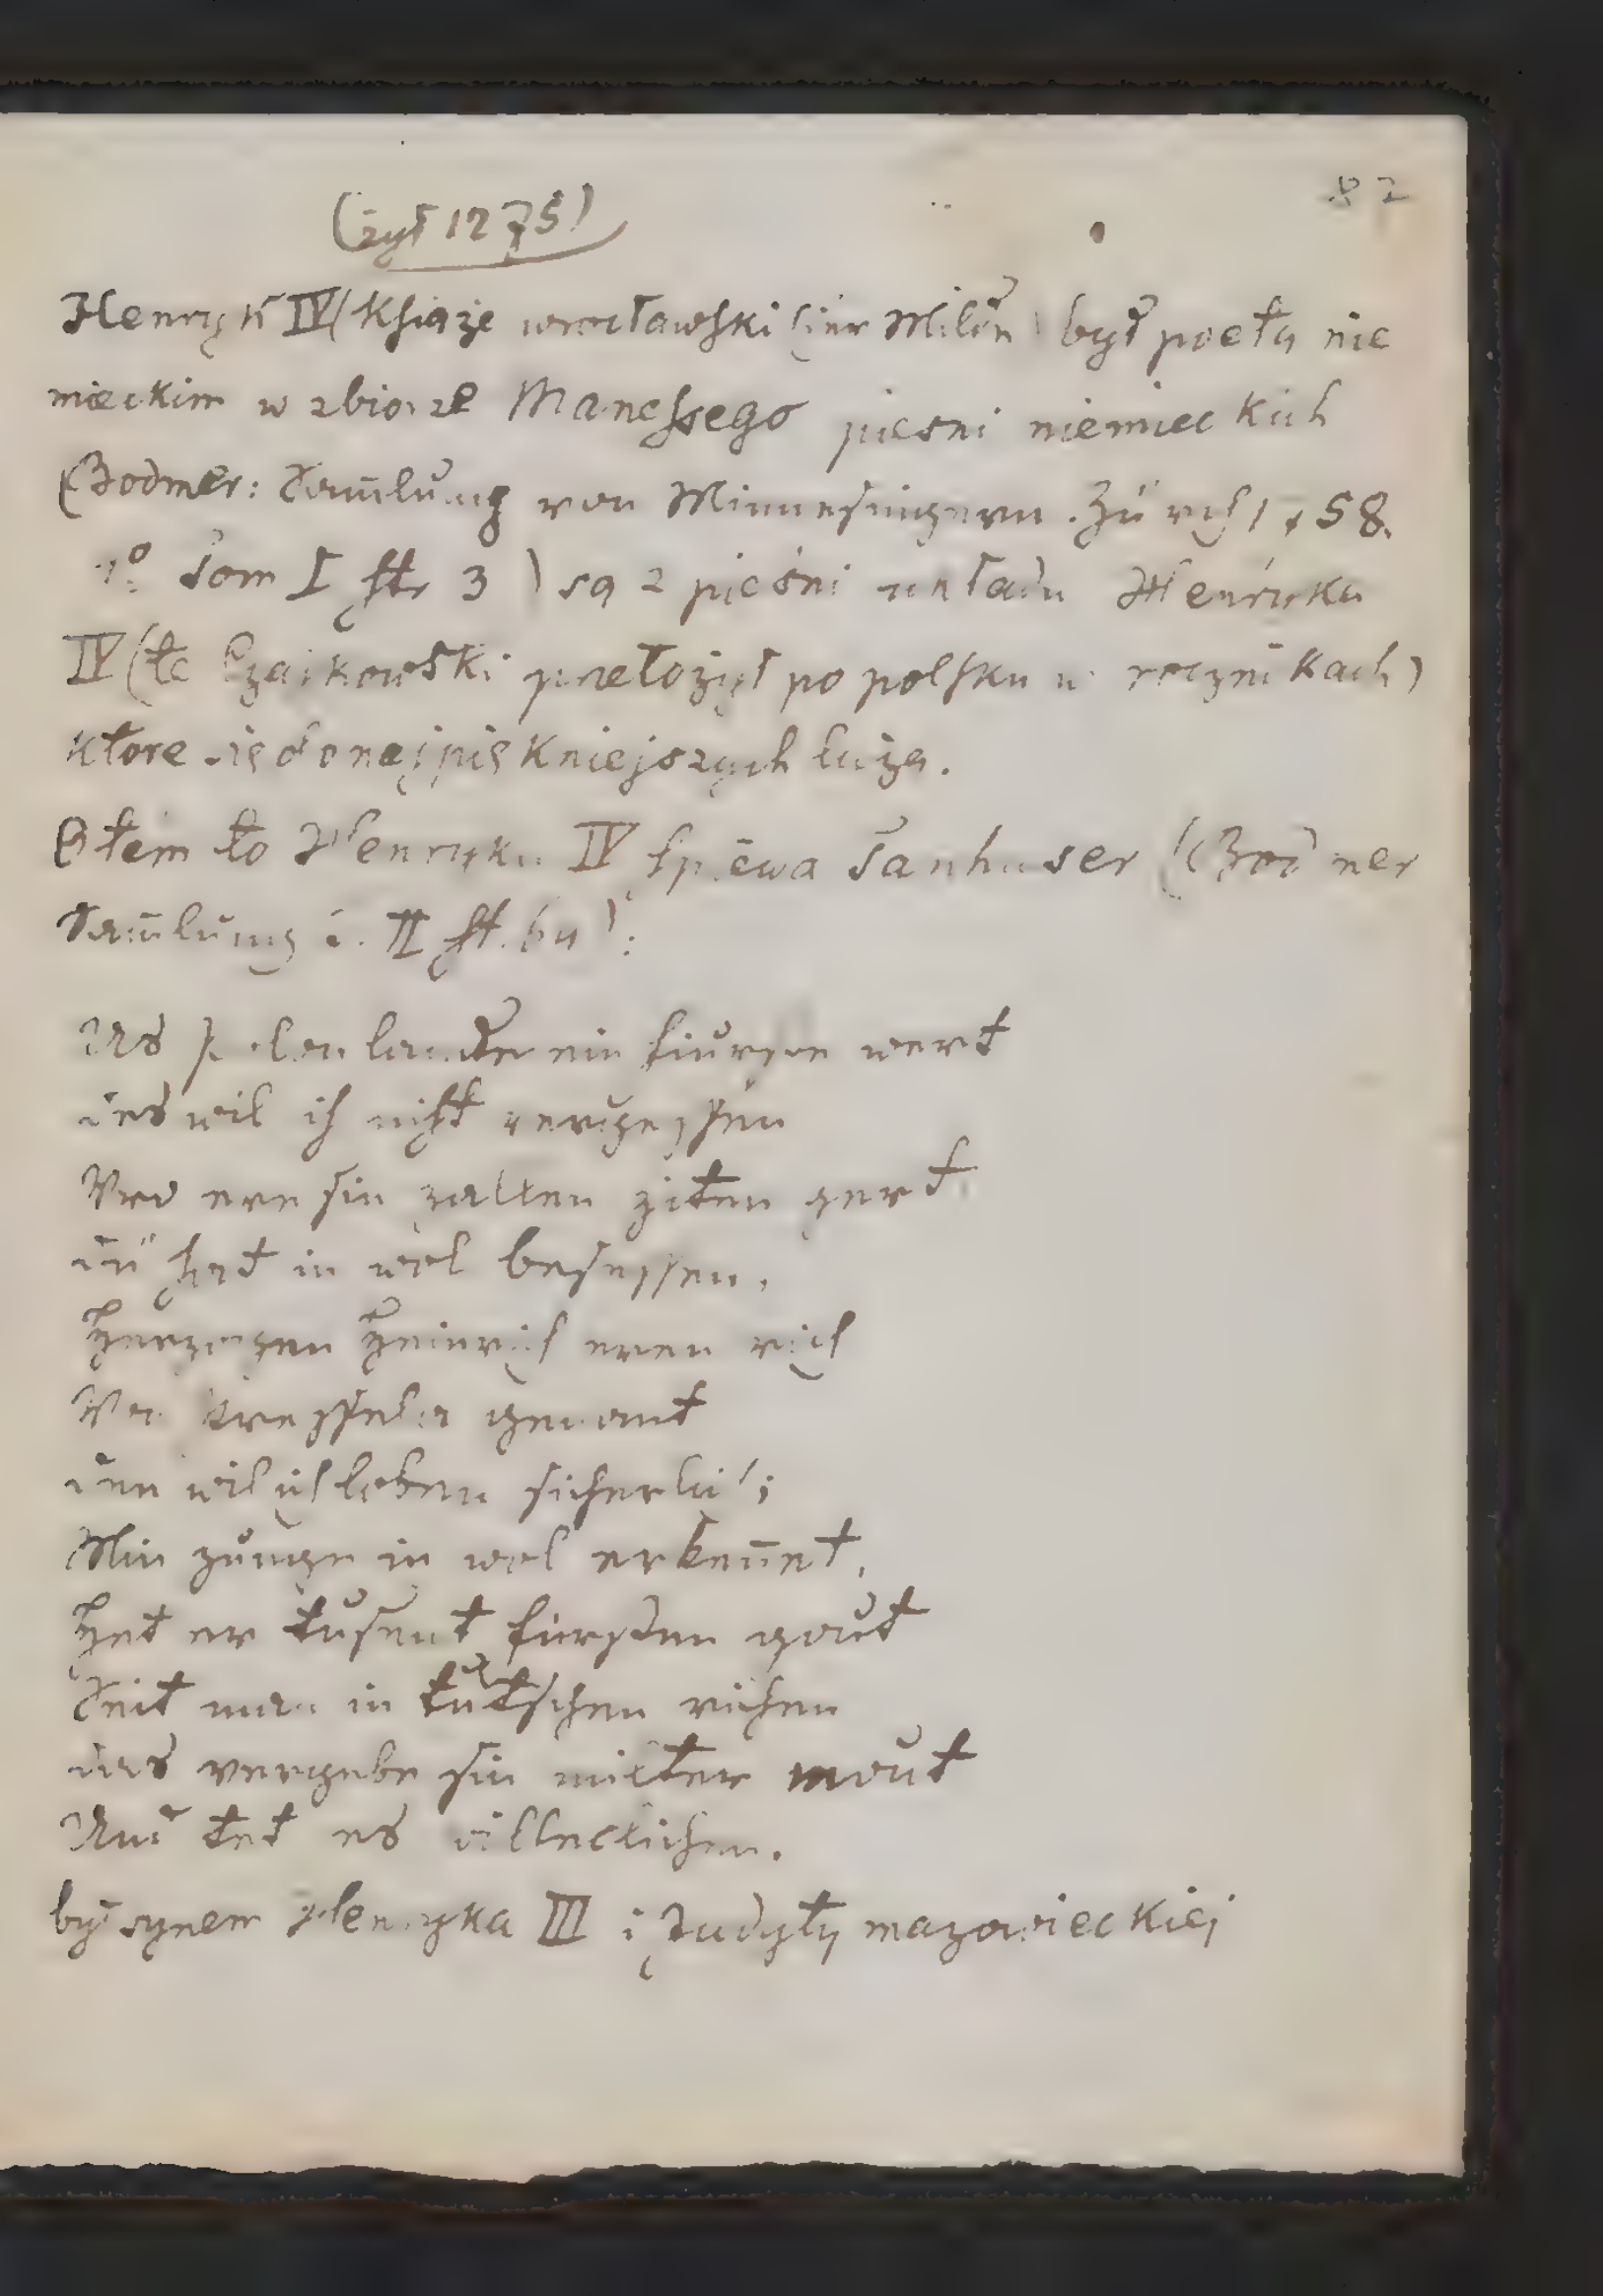 82
(żył 1275)
Henryk IV (Książe wrocławski (der Milde) był poetą nie
mieckim w zbiorze Manessego piesni niemieckich
(Bodmer: Samlung von Minnesingern. Zürich 1758.
4° Tom I str 3) są 2 pieśni układu Henryka
IV (te Czajkowski przełożył po polsku w rocznikach)
które się do najpiękniejszych liczą.
O tem to Henryku IV śpiewa Tanhuser (Bodmer
Samlung T. II st. 64):
Us Polonlande ein fiurste wert
des wil ich nicht vergessen
Vro ere sin zallen ziten gert
dü hat in wol besessen.
Herzogen Heinrich eren rich
Von Pressela genant
den wil ich loben sicherlich;
Min zunge in wol erkennet.
Het er tusent fursten gout
Seit man in tutschen richen
das vergebe sin milter mout
Und tet es willeclichen.
był synem Henryka III i Judyty mazowieckiej